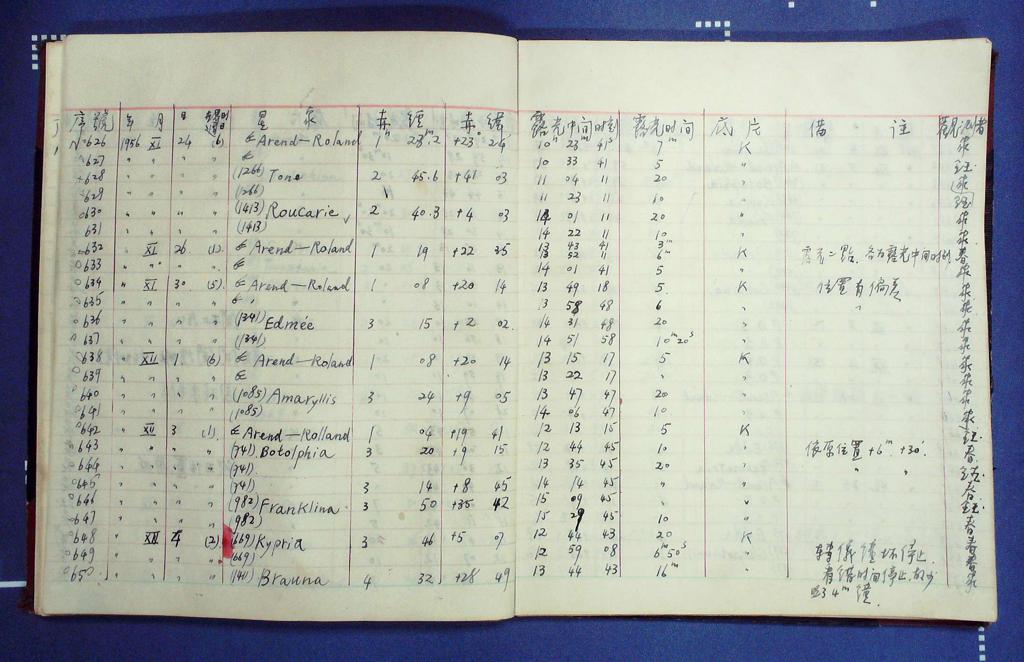 序號 年 月 日 星期 星象 赤經 赤緯 露光中间时刻 露光时间 底片 俻註 觀測者
626 1956 XI 24 (6) Arend—Roland 1ʰ 23ᵐ.2 +23° 24' 10ʰ 23ᵐ 41ˢ 7ᵐ K
627 " " " " 10 33 41 5 "
628 " " " " (1266) Tone 2 45.6 +41 03 11 04 11 20 "
629 " " " " (1266) 11 23 11 10 "
630 " " " " (1413) Roucarie 2 40.3 +4 03 14 01 11 20 "
631 " " " " (1413) 14 22 11 10 "
632 " XI 26 (1) Arend—Roland 1 19 +22 35 13 43 41 3ᵐ K
13 52 11 6ᵐ 露光二點,各为露光中间时刻
633 " " " " 14 01 41 5 "
634 " XI 30 (5) Arend—Roland 1 08 +20 14 13 49 18 5 K 位置有偏差
635 " " " " 13 58 48 6 " "
636 " " " " (1341) Edmée 3 15 +2 02 14 31 48 20 "
637 " " " " (1341) 14 51 58 10ᵐ20ˢ "
638 XII 1 (6) Arend—Roland 1 08 +20 14 13 15 17 5 K
639 " " " " 13 22 17 " "
640 " " " " (1085) Amaryllis 3 24 +9 05 13 47 47 20 "
641 " " " " (1085) 14 06 47 10 "
642 " XII 3 (1) Arend—Rolland 1 04 +19 41 12 13 15 5 K
643 " " " " (741) Botolphia 3 20 +9 15 12 44 45 10 " 依原位置+6ᵐ +30'
644 " " " " (741) 13 35 45 20 " " "
645 " " " " (741) 3 14 +8 45 14 14 45 " "
646 " " " " (982) Franklina 3 50 +35 42 15 09 45 " "
647 " " " " (982) 15 29 45 10 "
648 " XII 4 (2) (669) Kypria 3 46 +5 07 12 44 43 20 K
649 " " " " (669) 12 59 08 6ᵐ50ˢ " 转儀鐘坏停止
650 " " " " (1411) Brauna 4 32 +28 49 13 44 43 16ᵐ " 有错时间停止,故少
4ᵐ鐘.